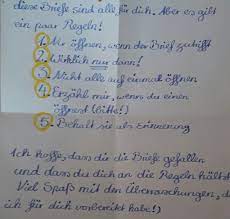 diese Briefe sind alle für dich. Aber es gibt
ein paar Regeln!
1. Nur öffnen, wenn der Brief zutrifft
2. Wirklich nur dann!
3. Nicht alle auf einmal öffnen
4. Erzähl mir, wenn du einen
öffnest (bitte!)
5. Behalt sie als Erinnerung
Ich hoffe, dass dir die Briefe gefallen
und dass du dich an die Regeln hältst.
Viel Spaß mit den Überraschungen, d
ich für dich vorbereitet habe!)